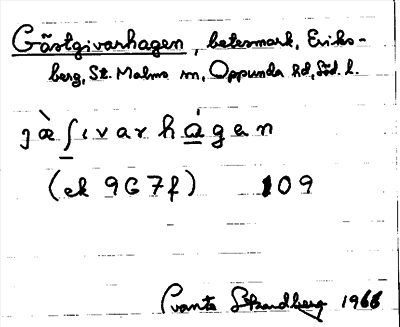 Gästgivarhagen, betesmark, Eriks-
berg, St. Malms sn, Oppunda hd, Söd. l.
jæ̀ʃɩvarhágan
(ek 9G7f) 109
Svante Strandberg 1966